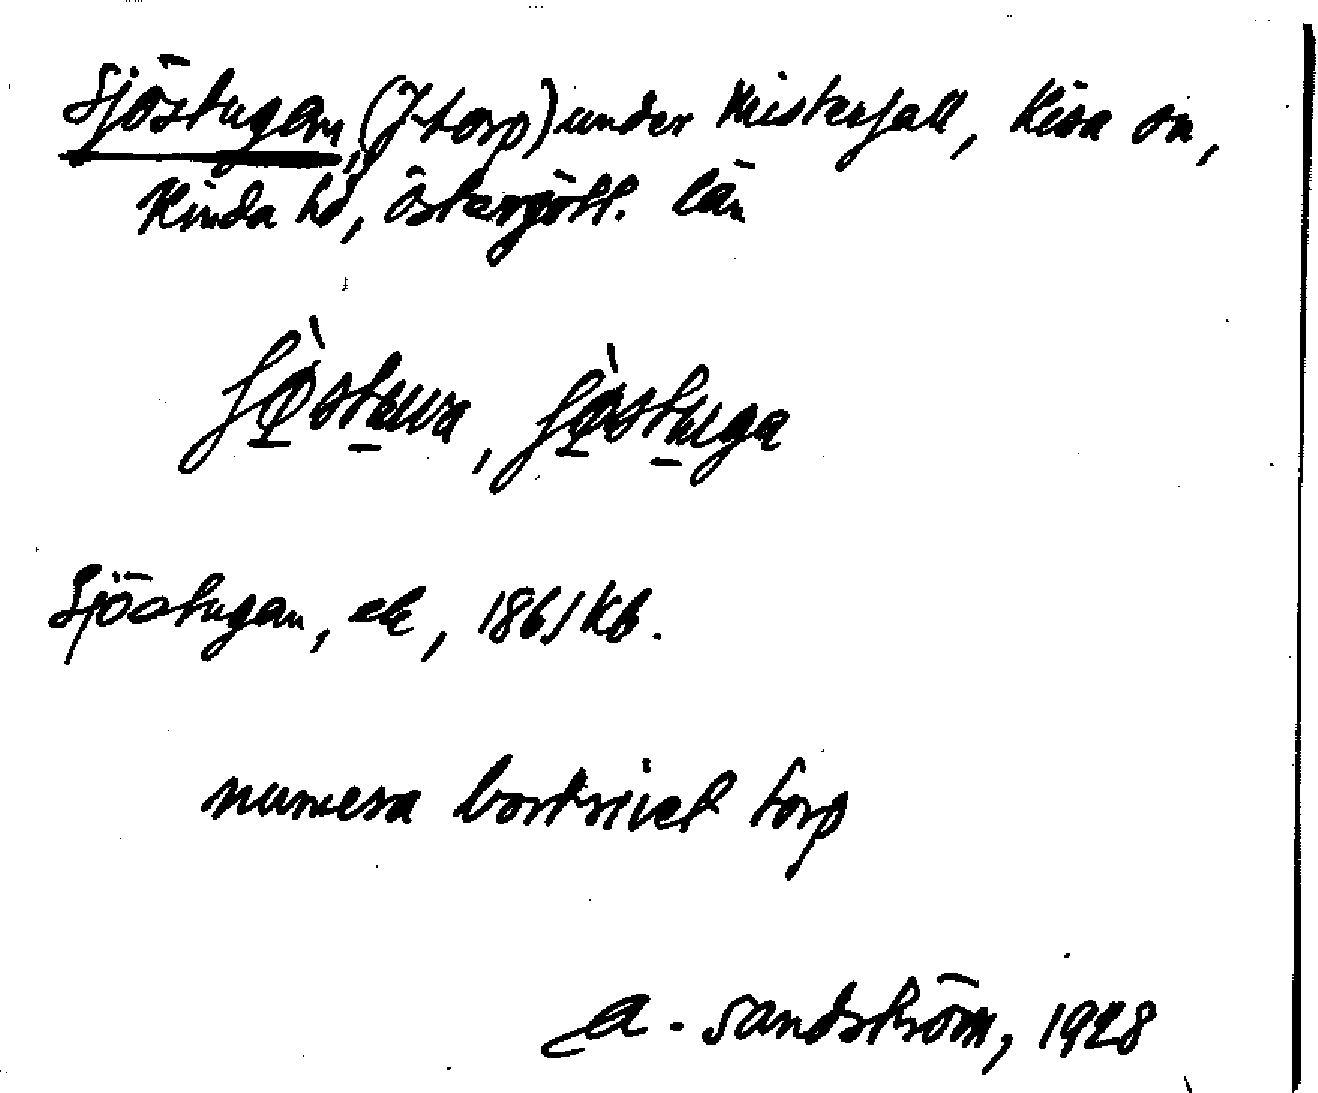 Sjöstugan, (f. torp) under Misterfall, Kisa sn,
Kinda hd, Östergötl. län
ʃø̀stuva, ʃø̀stuga
Sjöstugan, ek, 1861 Kb.
numera bortrivet torp
A. Sandström, 1928